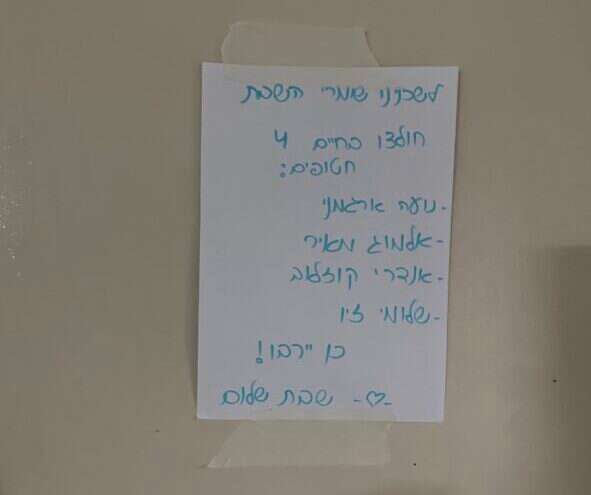 לשכניי שומרי השבת
חולצו בחיים 4
חטופים:
- נועה ארגמני
- אלמוג מאיר
- אנדרי קוזלוב
- שלומי זיו
כן ירבו!
-♡- שבת שלום